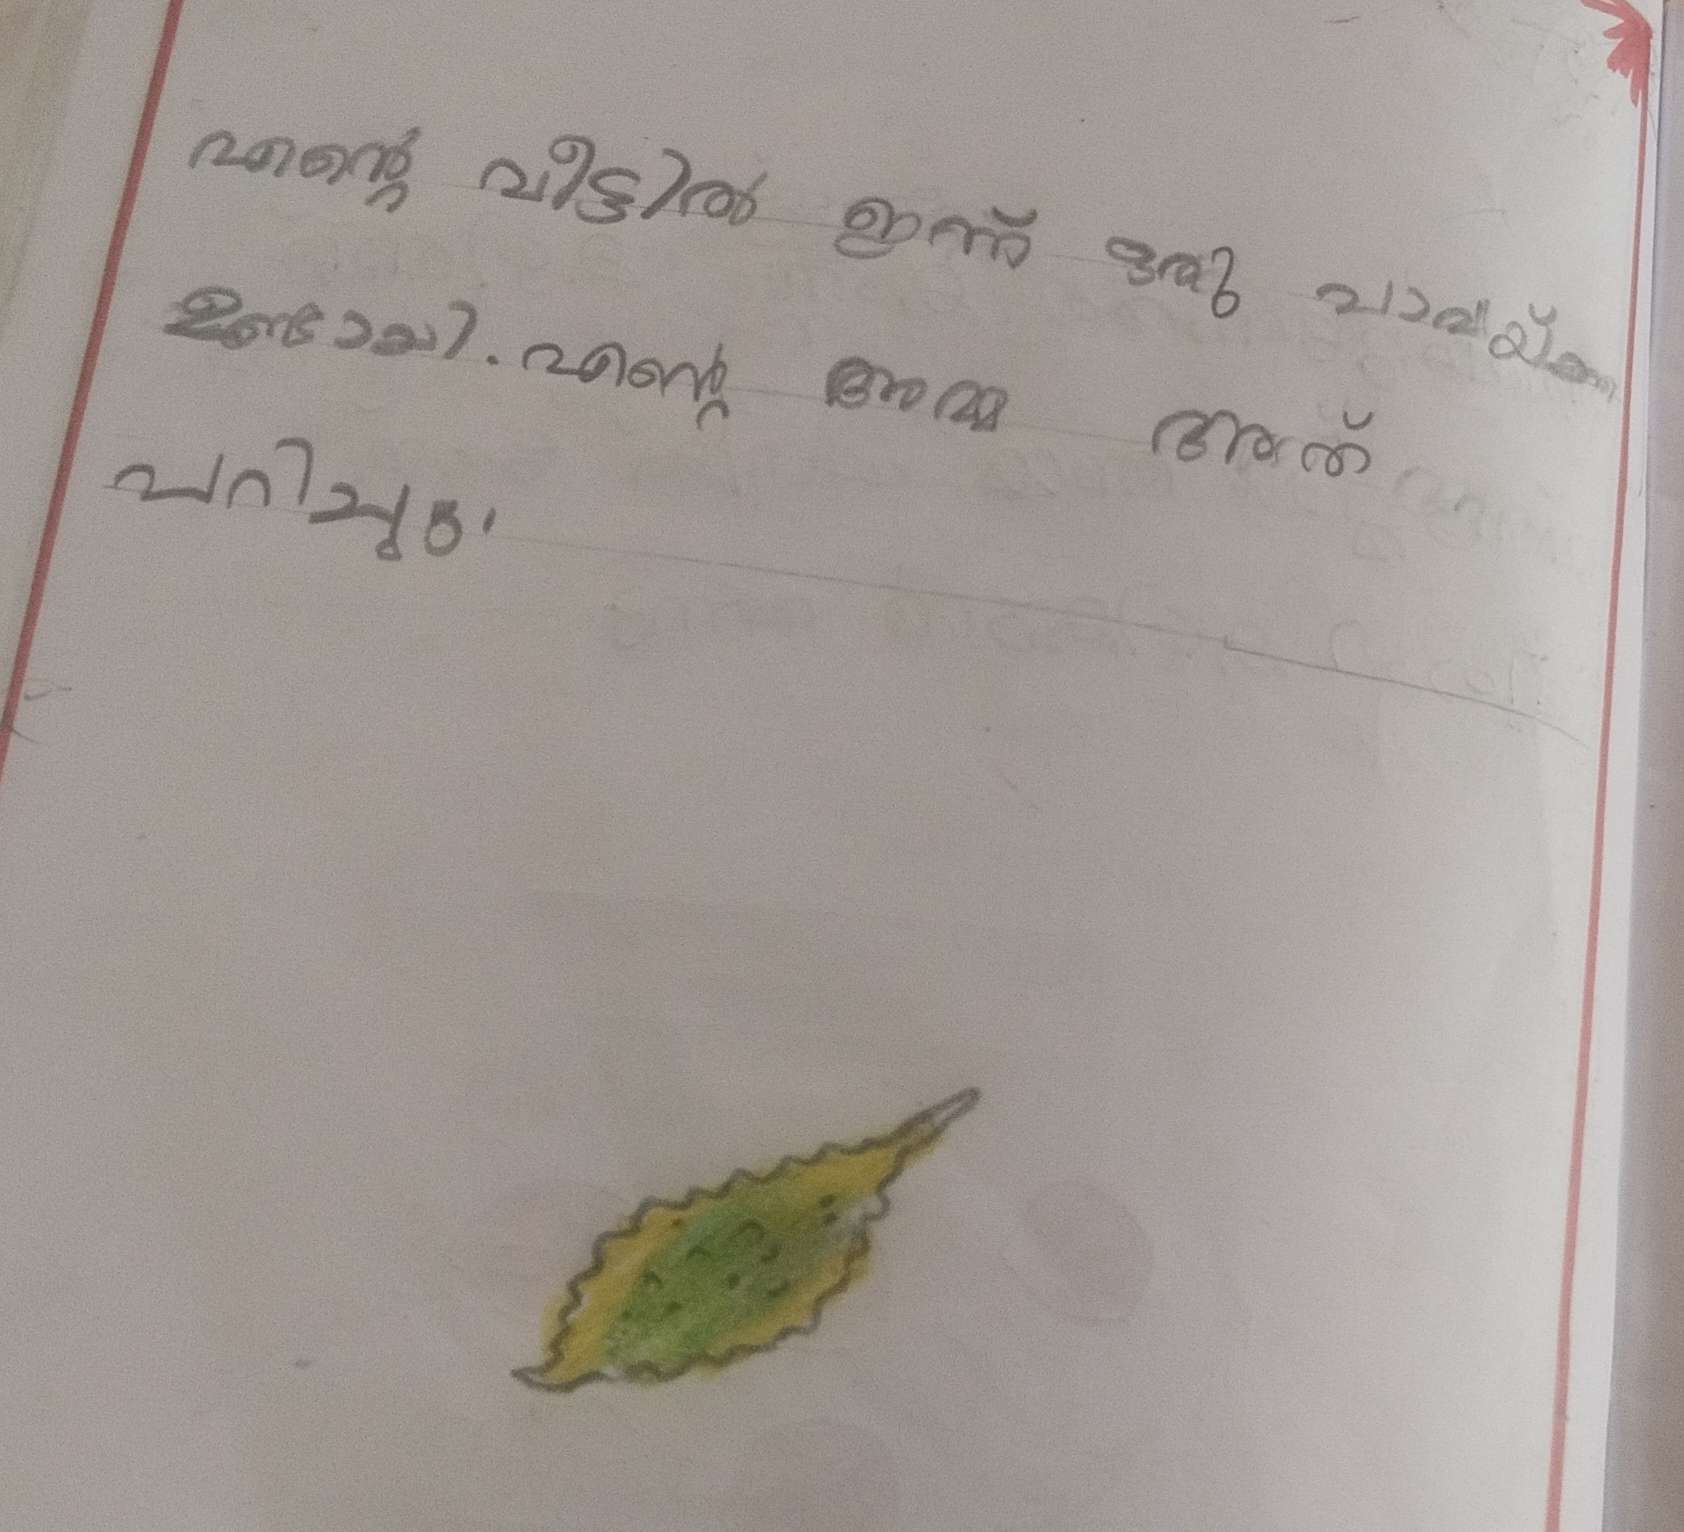 എന്റെ വീട്ടിൽ ഇന്ന് ഒരു പാവയ്ക്ക
ഉണ്ടായി. എന്റെ അമ്മ അത്
പറിച്ചു.